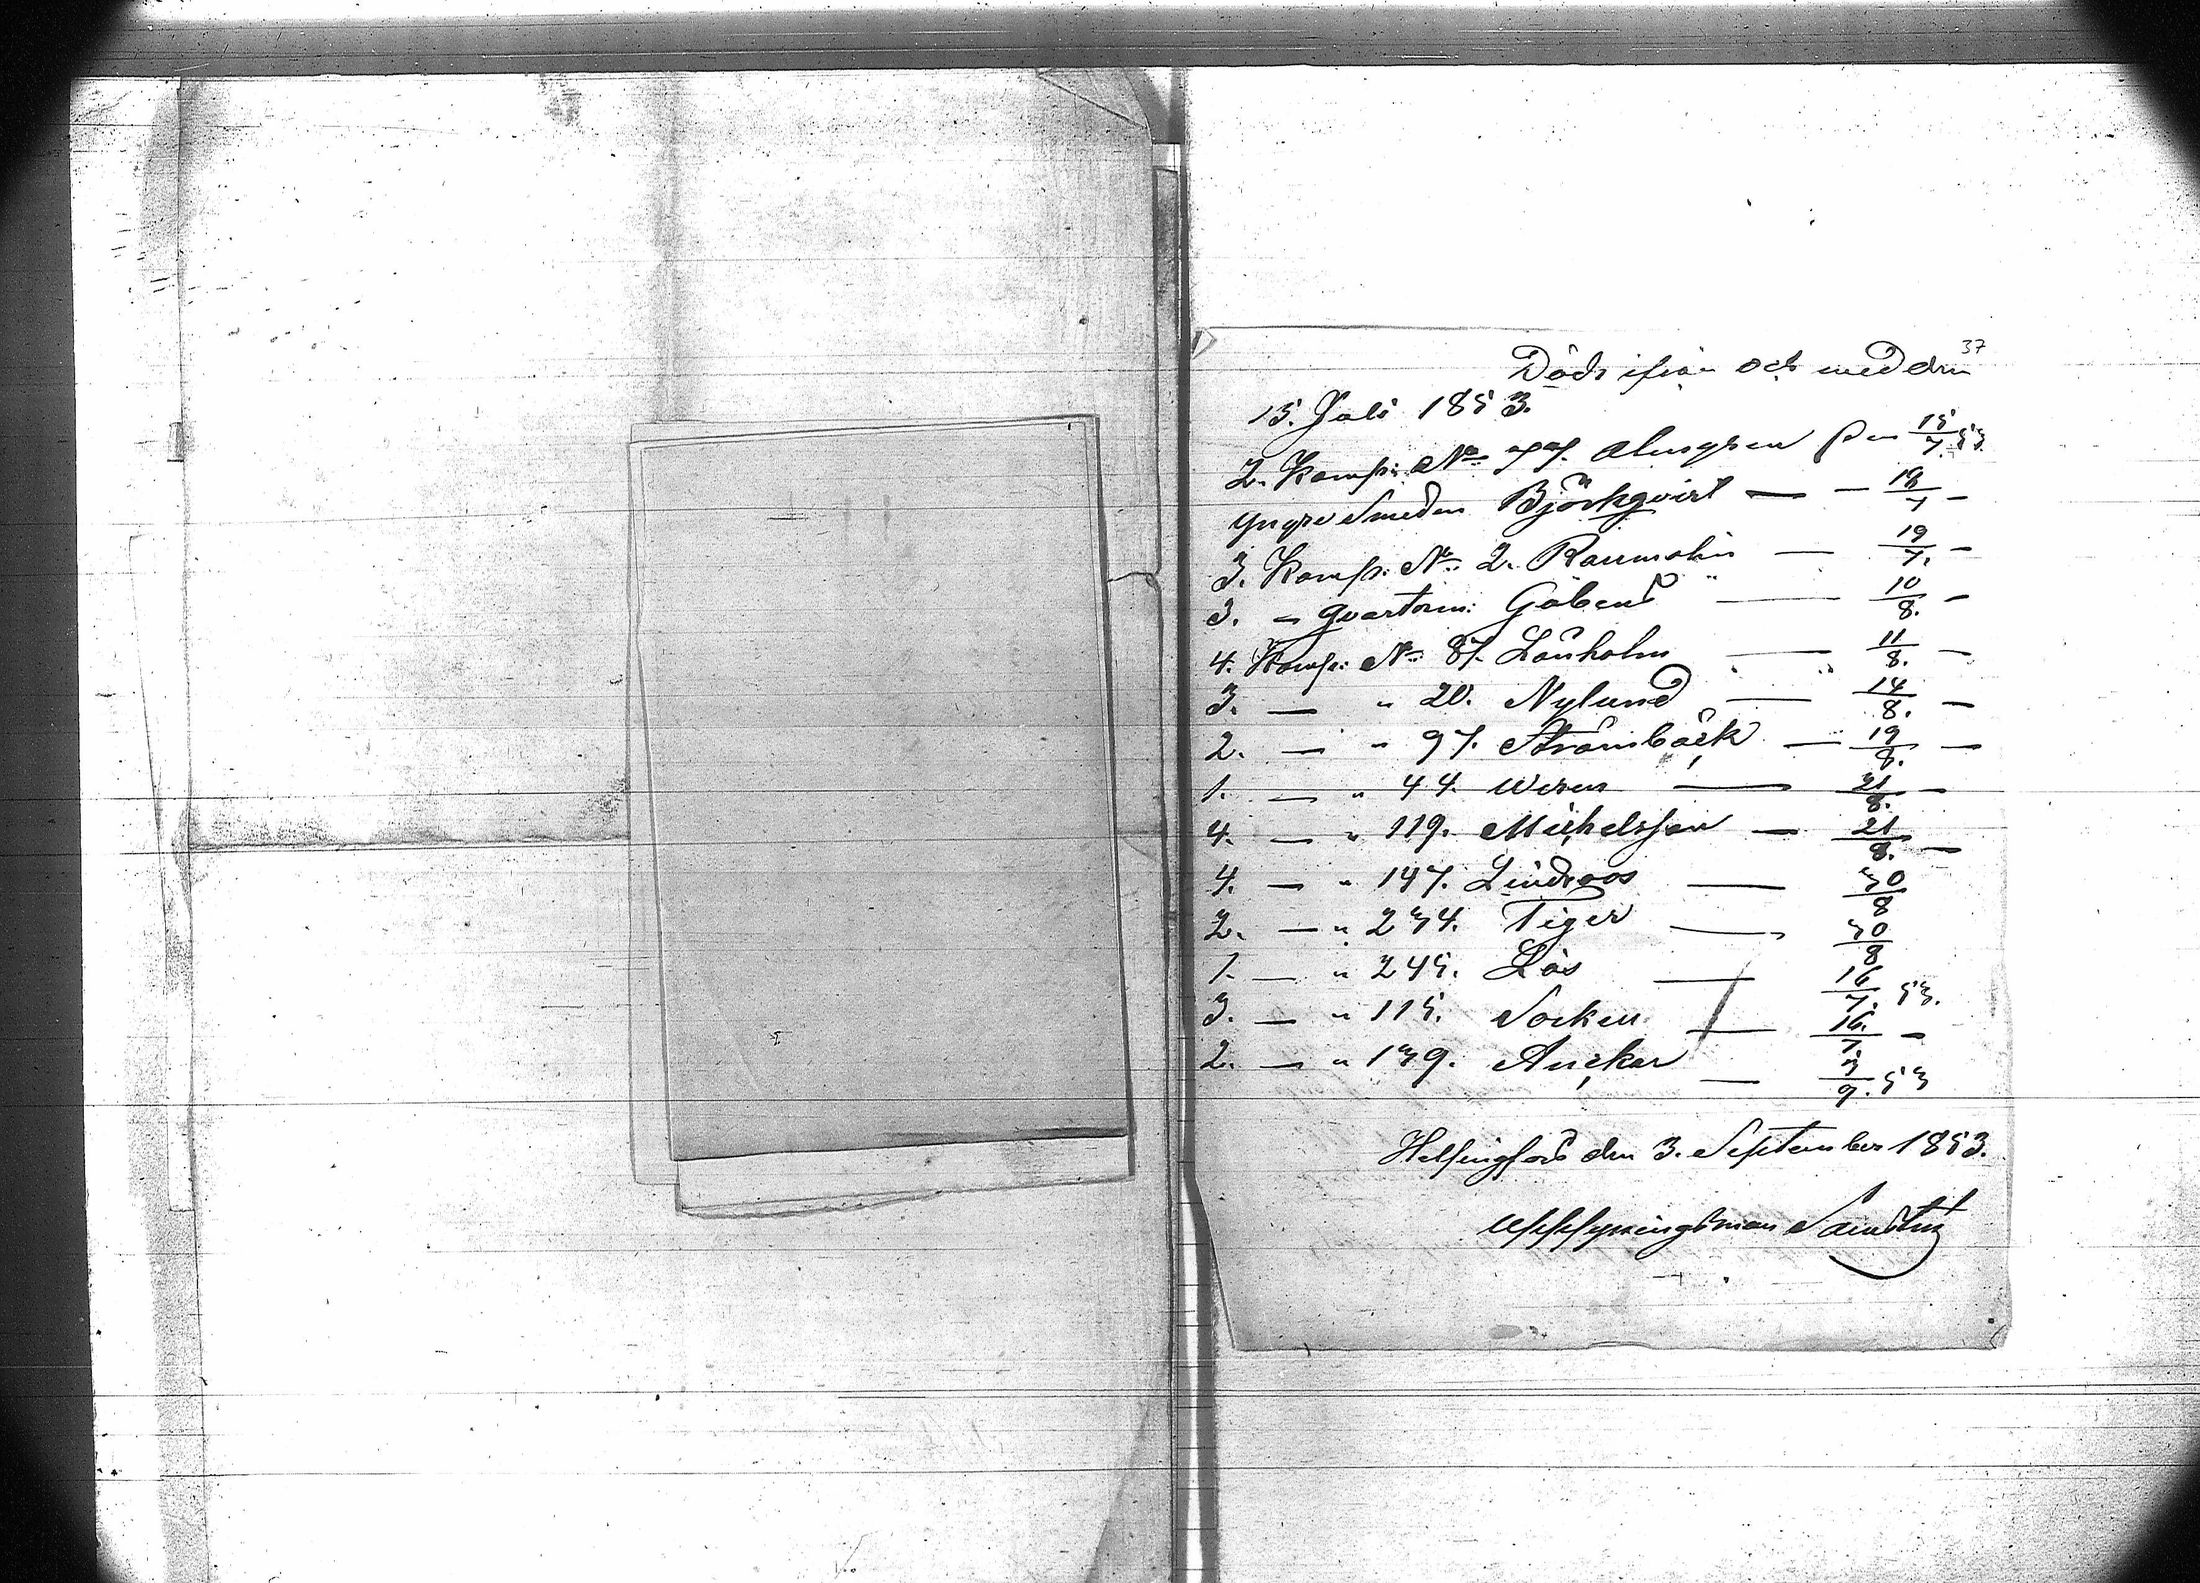 37
Döde ifrån och med den
15. Juli 1853.
2. Komp: No 77. Almgren den 15/7. 53.
Yngre Smeden Björkqvist — — 18/7 —
3. Komp: No 2. Raumolin — 19/7. —
3. — qvarterm: Göbens — 10/8. —
4. Komp: No 87. Lönholm — 11/8. —
3. — " 20. Nylund — 14/8. —
2. — " 97. Strömbäck — 19/8. —
1. — " 44. Weren — 21/8. —
4. — " 119. Michelsson — 21/8. —
4. — " 147. Lindroos — 30/8
2. — " 234. Tiger — 30/8
1. — " 245. Lås — 16/7. 53.
3. — " 115. Socken — 16./7 —
2. — " 139. Anckar — 3/9. 53
Helsingfors den 3. September 1853.
Uppsyningsman